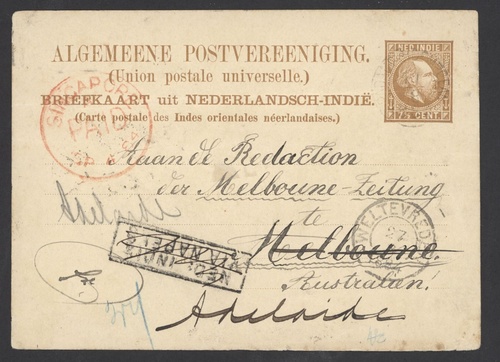 ALGEMEENE POSTVEREENIGING.
(Union postale universelle.)
BRIEFKAART uit NEDERLANDSCH-INDIË.
(Carte postale des Indes orientales néerlandaises.)
NED. INDIE
7½ CENT.
SINGAPORE
PAID
An de Redaction
der Melbourne-Zeitung
te
Melbourne
Australien!
Adelaide
WELTEVREDEN
27
NED. INDIE
VIA NAPELS
Adelaide